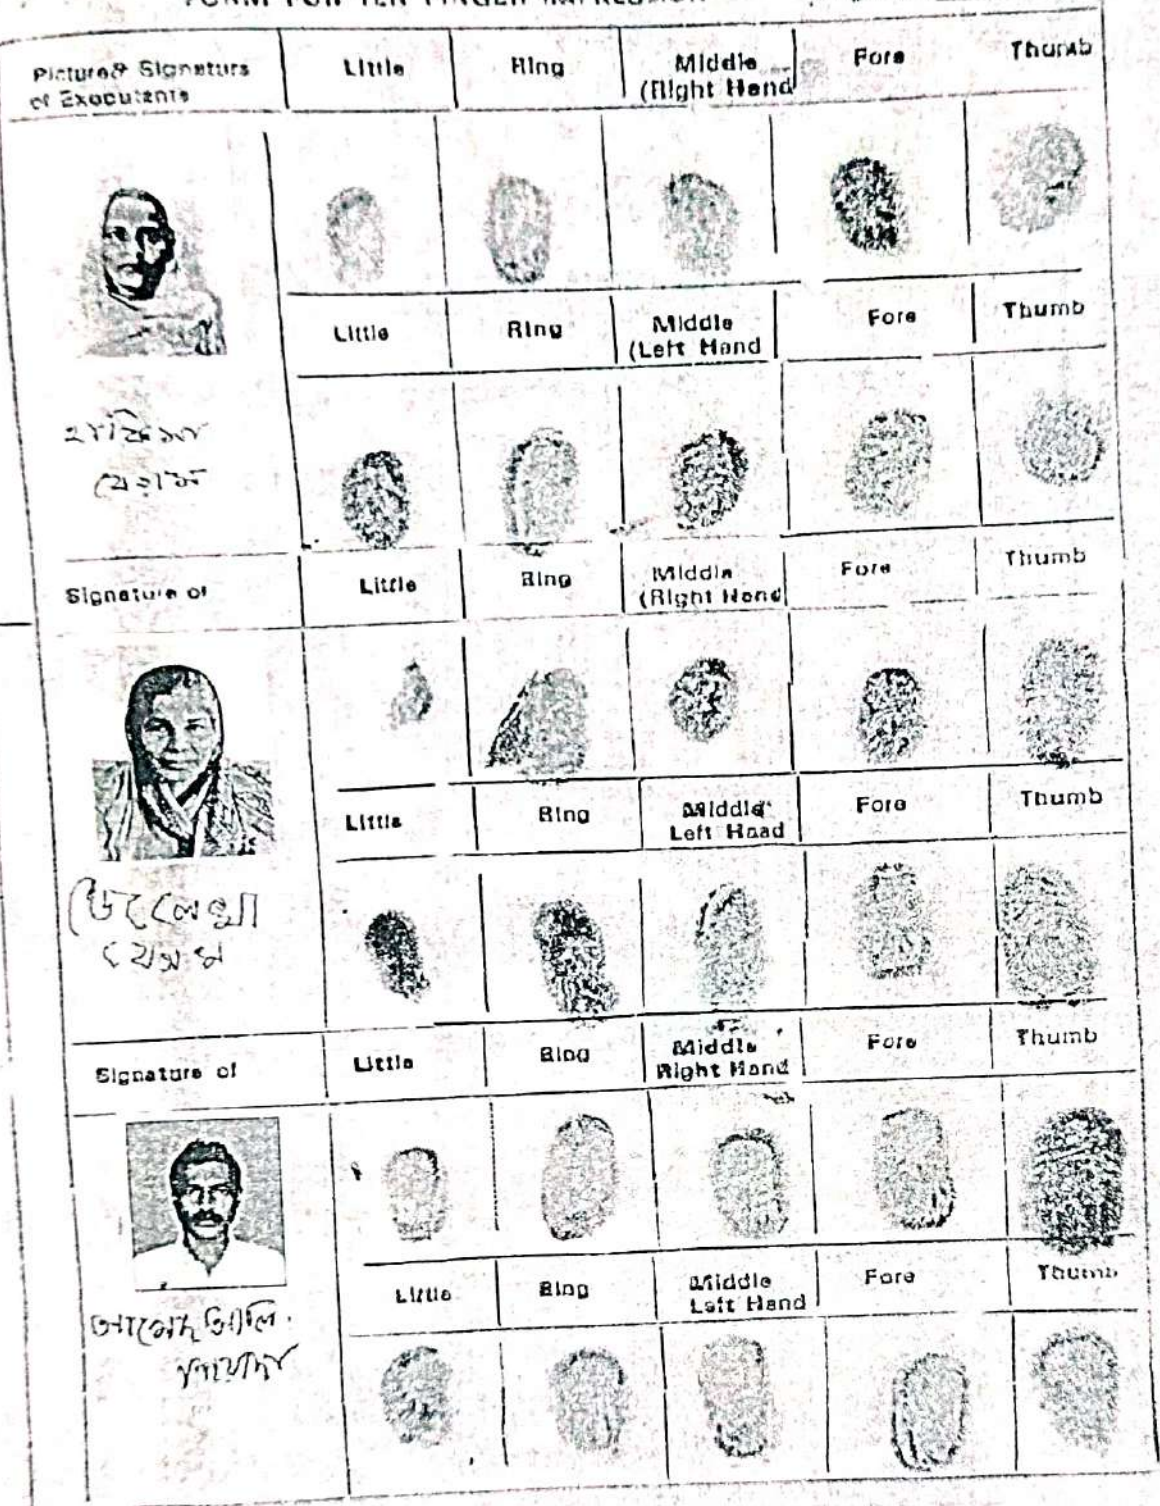 FORM FOR TEN FINGER IMPRESSION
Picture& Signaturs of Executants
Little Ring Middle (Right Hand Fore Thumb
Little Ring Middle (Left Hand Fore Thumb
বেগম
Signature of Little Ring Middle (Right Hand Fore Thumb
Little Ring Middle Left Hand Fore Thumb
জেলেখা
বেগম
Signature of Little Ring Middle Right Hand Fore Thumb
Little Ring Middle Left Hand Fore Thumb
আলি